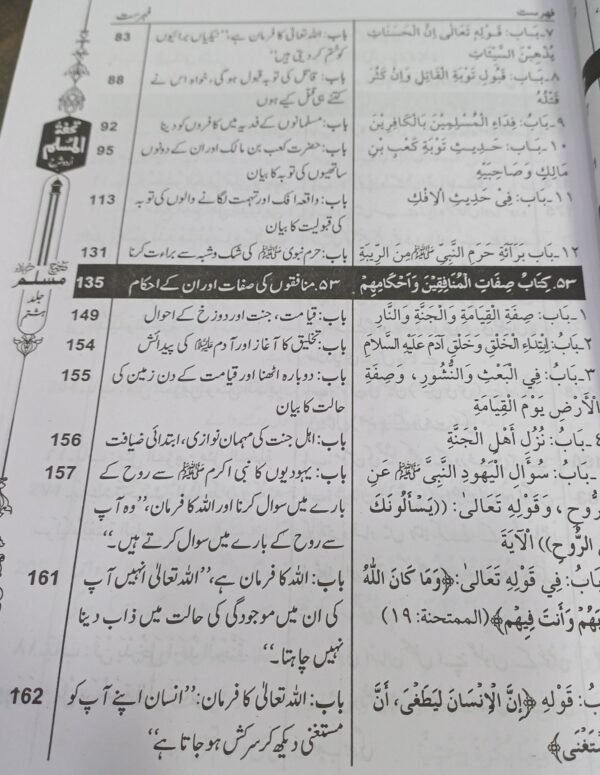 فہرست
فہرست
٧۔بَابُ: قَوْلِهِ تَعَالَى إِنَّ الْحَسَنَاتِ
يُذْهِبْنَ السَّيِّئَاتِ
باب: اللہ تعالیٰ کا فرمان ہے، ’’نیکیاں برائیوں 83
کو ختم کر دیتی ہیں‘‘
٨۔بَابُ: قَبُولِ تَوْبَةِ الْقَاتِلِ وَإِنْ كَثُرَ
قَتْلُهُ
باب: قاتل کی توبہ قبول ہوگی، خواہ اس نے 88
کتنے ہی قتل کیے ہوں
٩۔بَابُ: فِدَاءِ الْمُسْلِمِينَ بِالْكَافِرِينَ
باب: مسلمانوں کے فدیہ میں کافروں کو دینا 92
١٠۔بَابُ: حَدِيثِ تَوْبَةِ كَعْبِ بْنِ
مَالِكٍ وَصَاحِبَيْهِ
باب: حضرت کعب بن مالک اور ان کے دونوں 95
ساتھیوں کی توبہ کا بیان
١١۔بَابُ: فِي حَدِيثِ الْإِفْكِ
باب: واقعہ افک اور تہمت لگانے والوں کی توبہ 113
کی قبولیت کا بیان
١٢۔بَابُ بَرَائَةِ حَرَمِ النَّبِيِّ ﷺ مِنَ الرِّيبَةِ
باب: حرم نبوی ﷺ کی شک وشبہ سے براءت کرنا 131
٥٣۔ كِتَابُ صِفَاتِ الْمُنَافِقِينَ وَأَحْكَامِهِمْ
٥٣۔ منافقوں کی صفات اور ان کے احکام 135
١۔بَابُ: صِفَةِ الْقِيَامَةِ وَالْجَنَّةِ وَالنَّارِ
باب: قیامت، جنت اور دوزخ کے احوال 149
٢۔بَابُ: اِبْتِدَاءِ الْخَلْقِ وَخَلْقِ آدَمَ عَلَيْهِ السَّلَامُ
باب: تخلیق کا آغاز اور آدم ﷺ کی پیدائش 154
٣۔بَابُ: فِي الْبَعْثِ وَالنُّشُورِ، وَصِفَةِ
الْأَرْضِ يَوْمَ الْقِيَامَةِ
باب: دوبارہ اٹھنا اور قیامت کے دن زمین کی 155
حالت کا بیان
٤۔بَابُ: نُزُلِ أَهْلِ الْجَنَّةِ
باب: اہل جنت کی مہمان نوازی، ابتدائی ضیافت 156
۔بَابُ: سُؤَالِ الْيَهُودِ النَّبِيَّ ﷺ عَنِ
رُّوحِ، وَقَوْلِهِ تَعَالَى: ((يَسْأَلُونَكَ
الرُّوحِ)) الْآيَةَ
باب: یہودیوں کا نبی اکرم ﷺ سے روح کے 157
بارے میں سوال کرنا اور اللہ کا فرمان، ’’وہ آپ
سے روح کے بارے میں سوال کرتے ہیں۔‘‘
بَابُ: فِي قَوْلِهِ تَعَالَى: ﴿وَمَا كَانَ اللهُ
بَهُمْ وَأَنتَ فِيهِمْ﴾ (الممتحنة: ١٩)
باب: اللہ کا فرمان ہے، ’’اللہ تعالیٰ انہیں آپ 161
کی ان میں موجودگی کی حالت میں عذاب دینا
نہیں چاہتا۔‘‘
بُ: قَوْلِهِ ﴿إِنَّ الْإِنْسَانَ لَيَطْغَى، أَنْ
سْتَغْنَى﴾
باب: اللہ تعالیٰ کا فرمان: ’’انسان اپنے آپ کو 162
مستغنی دیکھ کر سرکش ہو جاتا ہے‘‘
تحفۃ
المسلم
مسلم
جلد
ہشتم